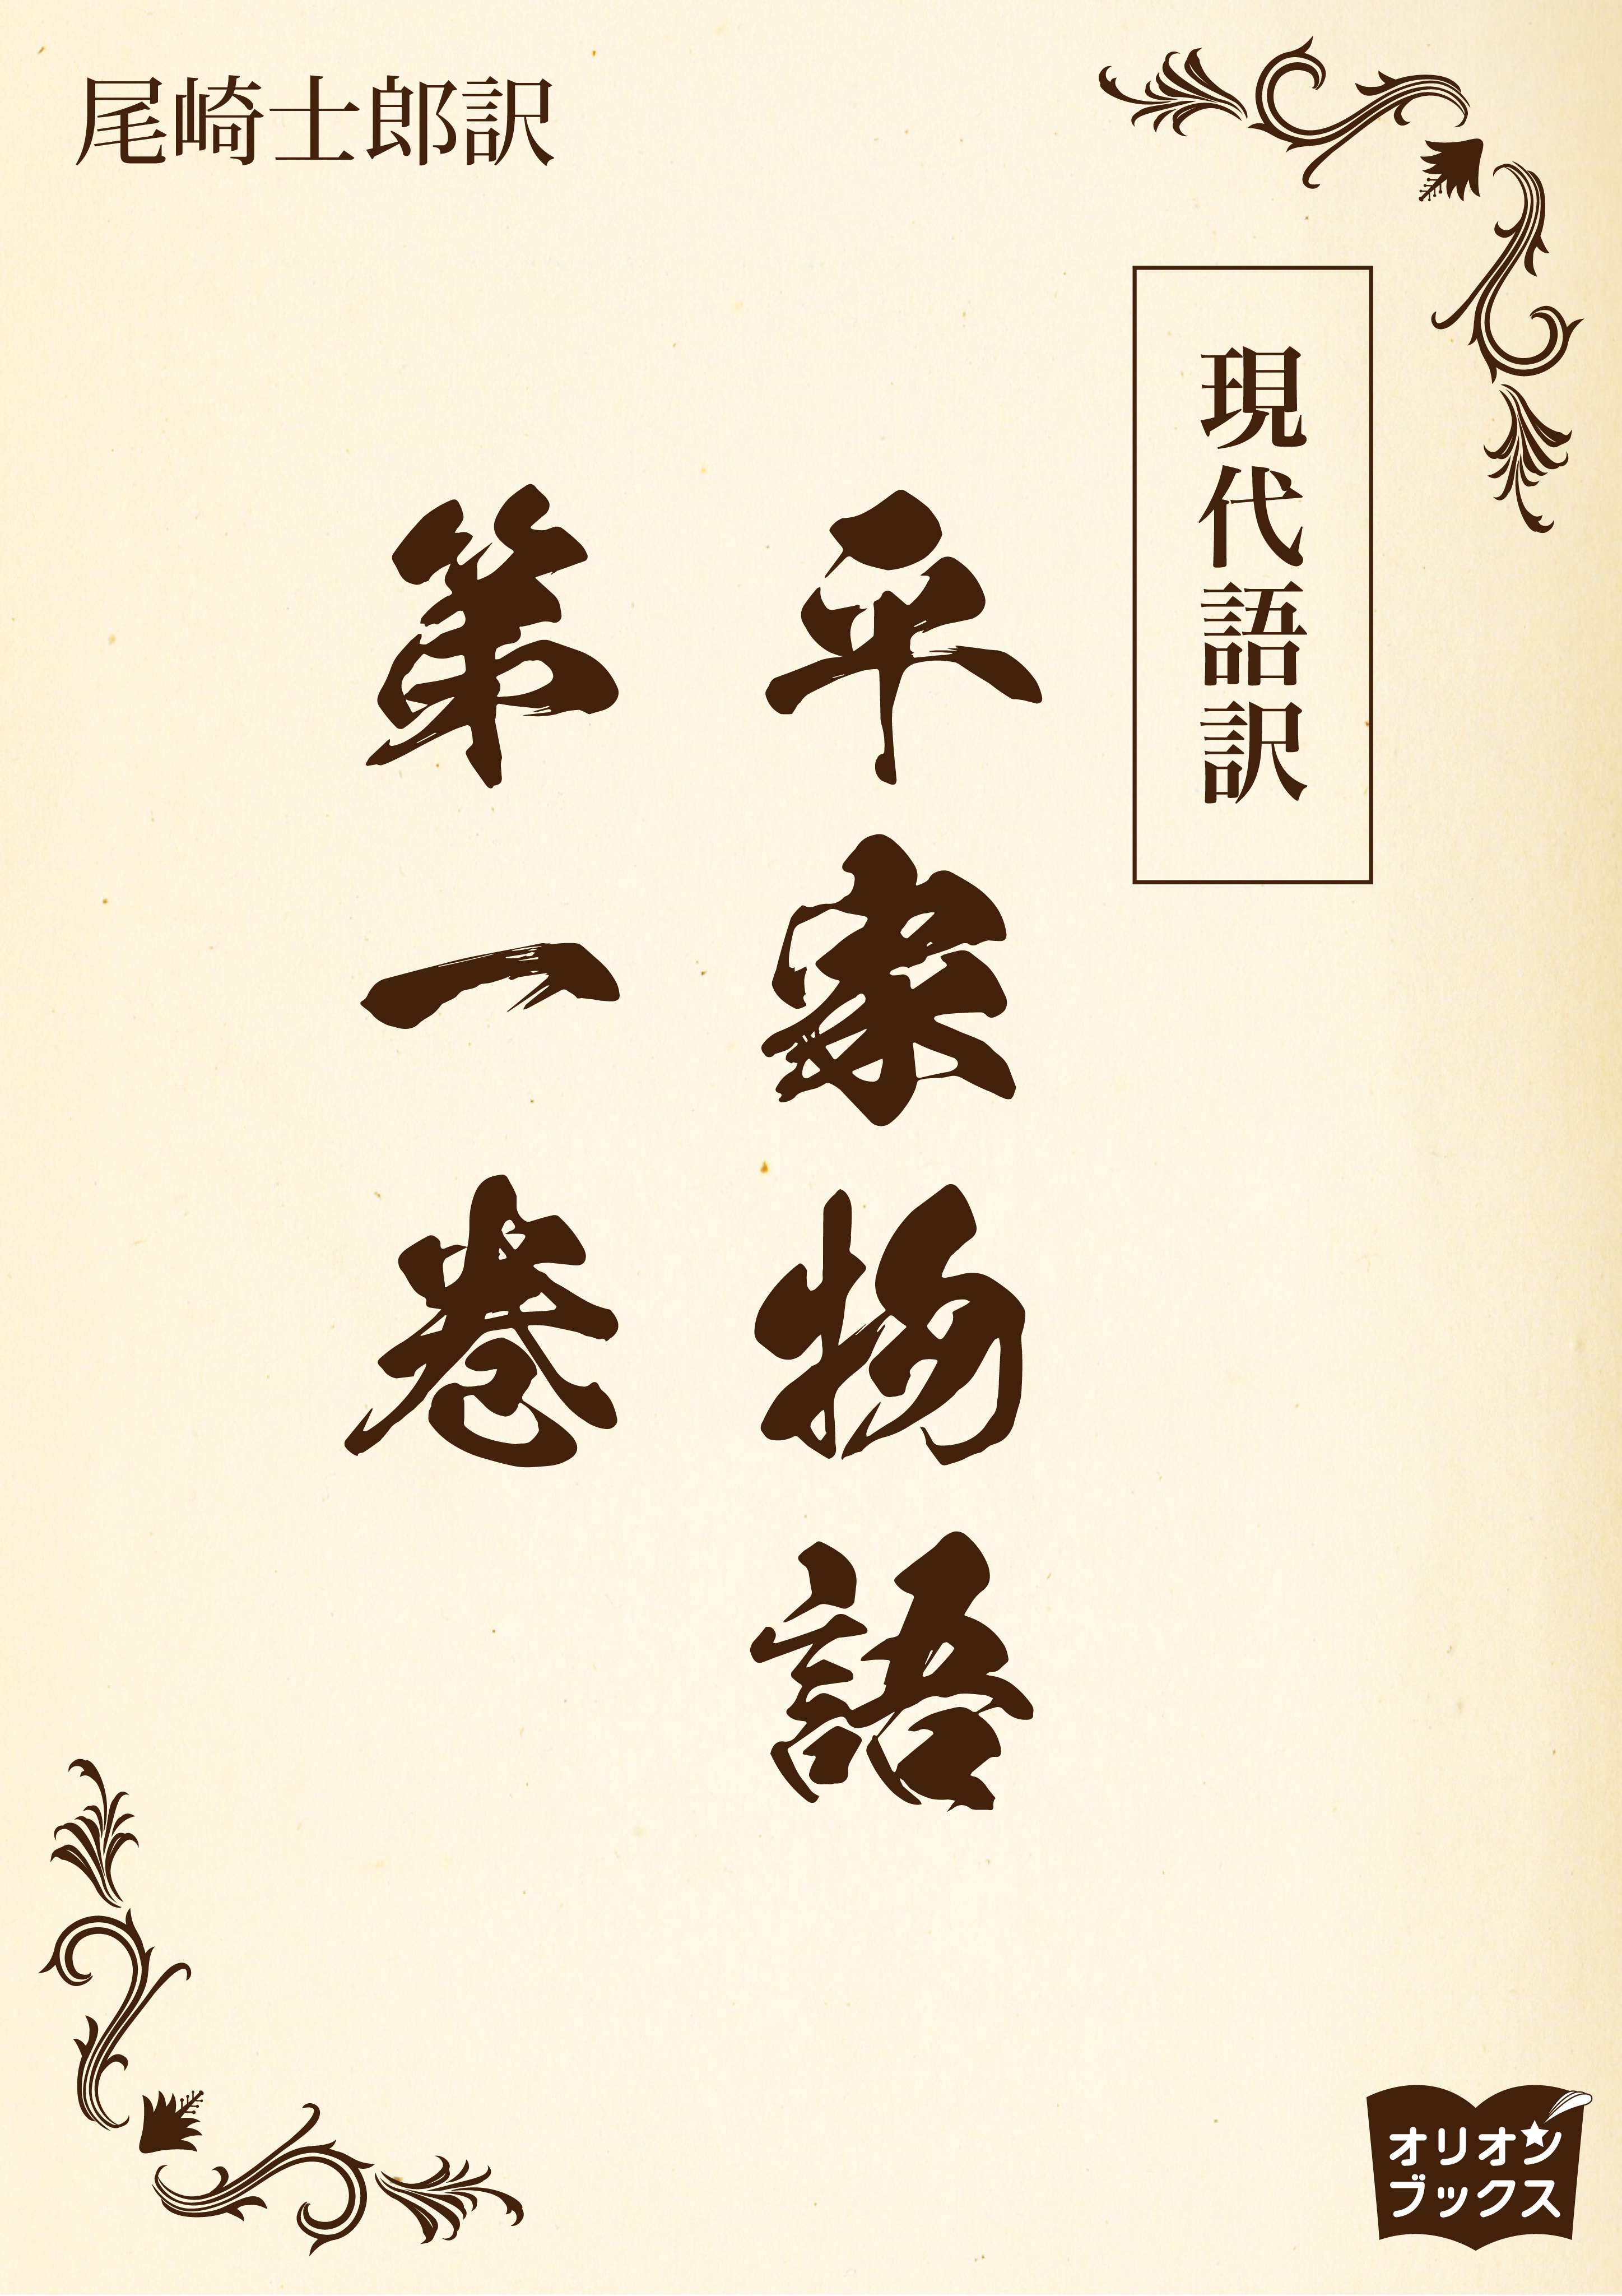 尾崎士郎訳
現代語訳
平家物語
第一巻
オリオン
ブックス